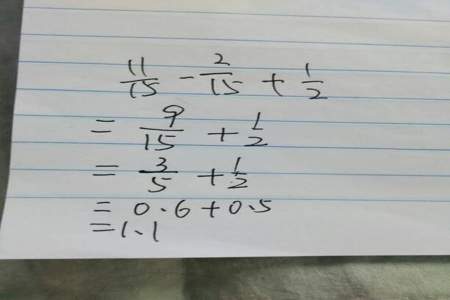 11/15 - 2/15 + 1/2
= 9/15 + 1/2
= 3/5 + 1/2
= 0.6 + 0.5
= 1.1